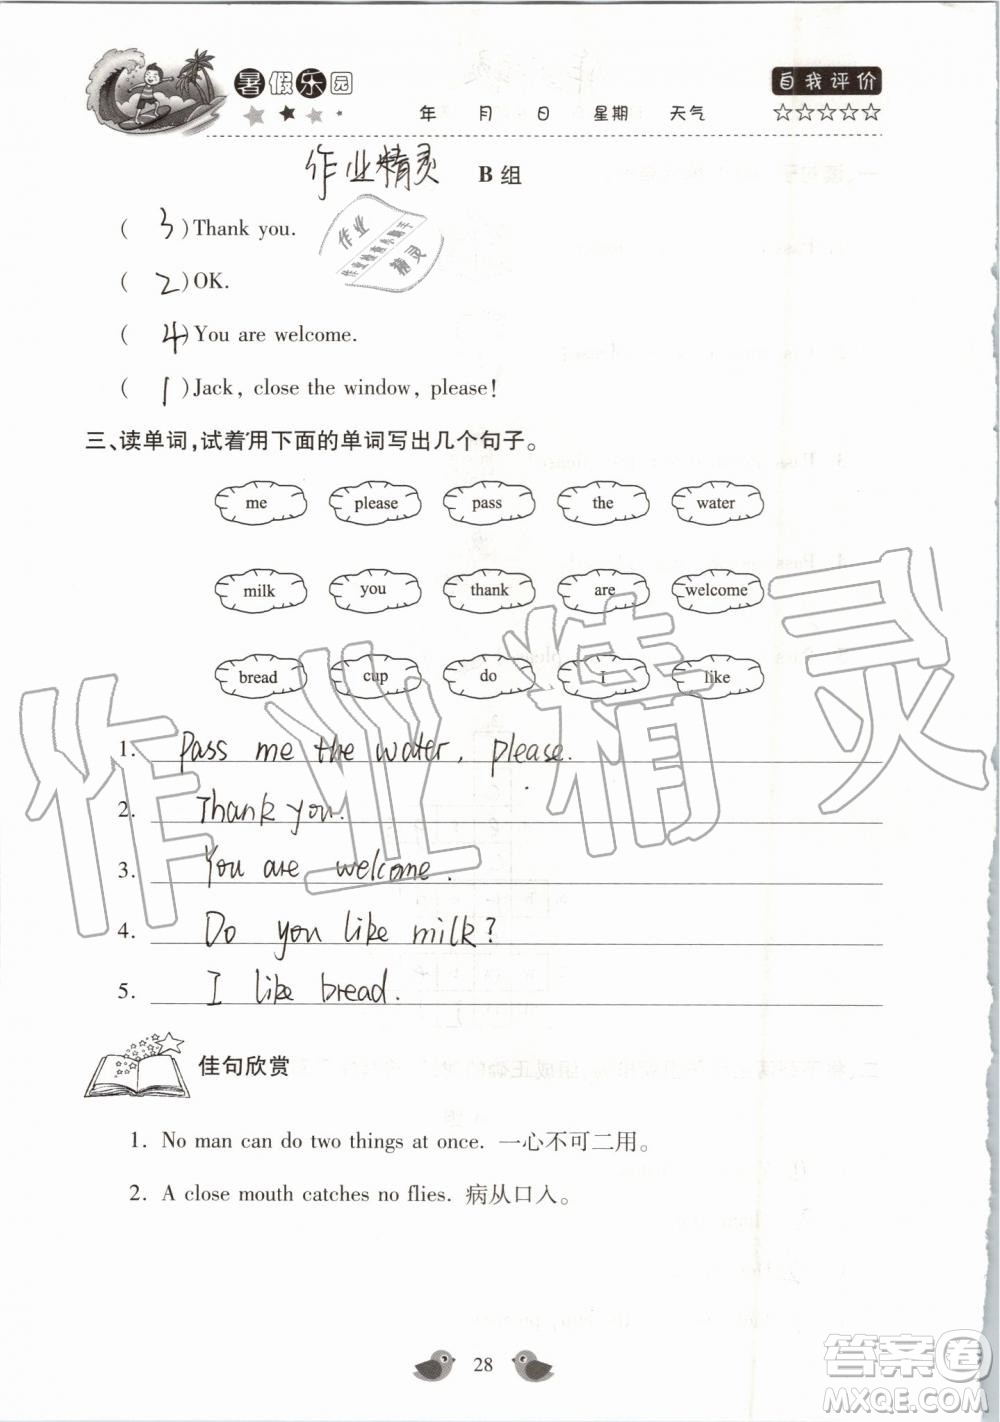 暑假乐园
自我评价
年 月 日 星期 天气 ☆☆☆☆☆
作业精灵 B 组
( 3 )Thank you.
( 2 )OK.
( 4 )You are welcome.
( 1 )Jack, close the window, please!
作业
作业检查小助手
精灵
三、读单词,试着用下面的单词写出几个句子。
me please pass the water
milk you thank are welcome
bread cup do I like
1. Pass me the water, please.
2. Thank you.
3. You are welcome.
4. Do you like milk?
5. I like bread.
作业精灵
佳句欣赏
1. No man can do two things at once. 一心不可二用。
2. A close mouth catches no flies. 病从口入。
28
答案圈
MXQE.COM